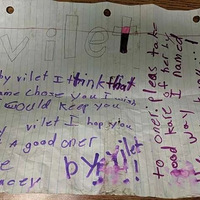 vilet
by vilet I think that
ame chose you I wish
I would keep you
vilet I hop you
a good oner
by vilet
!!!!
to oner: pleas take
good kare of her by
way I named